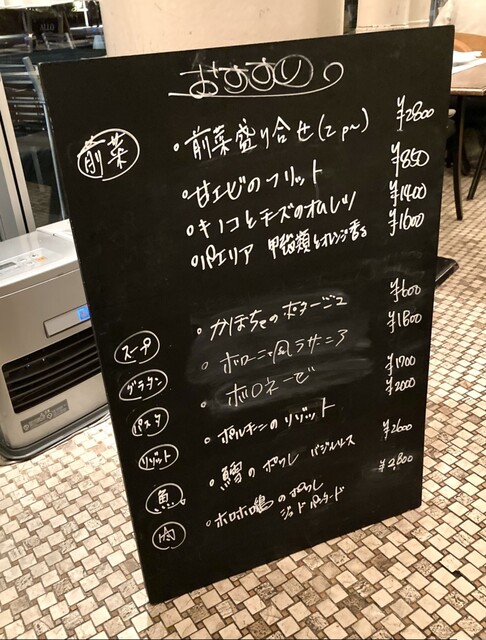 おすすめ
前菜
・前菜盛り合せ(2p〜) ¥2800
・甘エビのフリット ¥850
・キノコとチーズのオムレツ ¥1400
・パエリア 甲殻類とオレンジ香る ¥1600
スープ ・かぼちゃのポタージュ ¥600
グラタン ・ボローニャ風ラザニア ¥1800
パスタ ・ボロネーゼ ¥1700
リゾット ・ポルチーニのリゾット ¥2000
魚 ・鱈のポワレ バジルソース ¥2600
肉 ・ホロホロ鶏のポワレ ¥2800